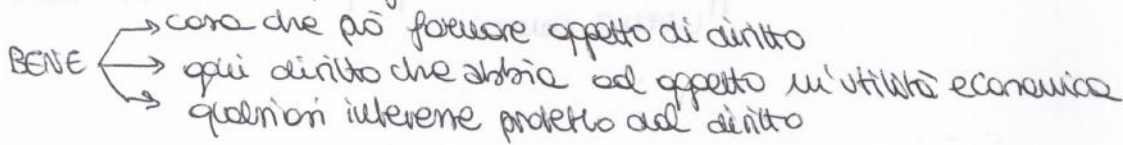 → cosa che può formare oggetto di diritto
BENE → ogni diritto che abbia ad oggetto un'utilità economica
→ qualsiasi interesse protetto dal diritto